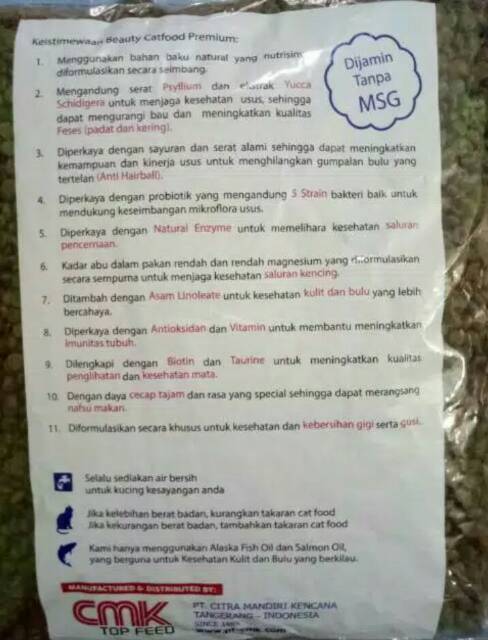 Keistimewaan Beauty Catfood Premium:
Dijamin
Tanpa
MSG
1. Menggunakan bahan baku natural yang nutrisinya
diformulasikan secara seimbang.
2. Mengandung serat Psyllium dan ekstrak Yucca
Schidigera untuk menjaga kesehatan usus, sehingga
dapat mengurangi bau dan meningkatkan kualitas
Feses (padat dan kering).
3. Diperkaya dengan sayuran dan serat alami sehingga dapat meningkatkan
kemampuan dan kinerja usus untuk menghilangkan gumpalan bulu yang
tertelan (Anti Hairball).
4. Diperkaya dengan probiotik yang mengandung 5 Strain bakteri baik untuk
mendukung keseimbangan mikroflora usus.
5. Diperkaya dengan Natural Enzyme untuk memelihara kesehatan saluran
pencernaan.
6. Kadar abu dalam pakan rendah dan rendah magnesium yang diformulasikan
secara sempurna untuk menjaga kesehatan saluran kencing.
7. Ditambah dengan Asam Linoleate untuk kesehatan kulit dan bulu yang lebih
bercahaya.
8. Diperkaya dengan Antioksidan dan Vitamin untuk membantu meningkatkan
imunitas tubuh.
9. Dilengkapi dengan Biotin dan Taurine untuk meningkatkan kualitas
penglihatan dan kesehatan mata.
10. Dengan daya cecap tajam dan rasa yang special sehingga dapat merangsang
nafsu makan.
11. Diformulasikan secara khusus untuk kesehatan dan kebersihan gigi serta gusi.
Selalu sediakan air bersih
untuk kucing kesayangan anda
Jika kelebihan berat badan, kurangkan takaran cat food
Jika kekurangan berat badan, tambahkan takaran cat food
Kami hanya menggunakan Alaska Fish Oil dan Salmon Oil,
yang berguna untuk Kesehatan Kulit dan Bulu yang berkilau.
MANUFACTURED & DISTRIBUTED BY:
CMK
TOP FEED
PT. CITRA MANDIRI KENCANA
TANGERANG - INDONESIA
SINCE